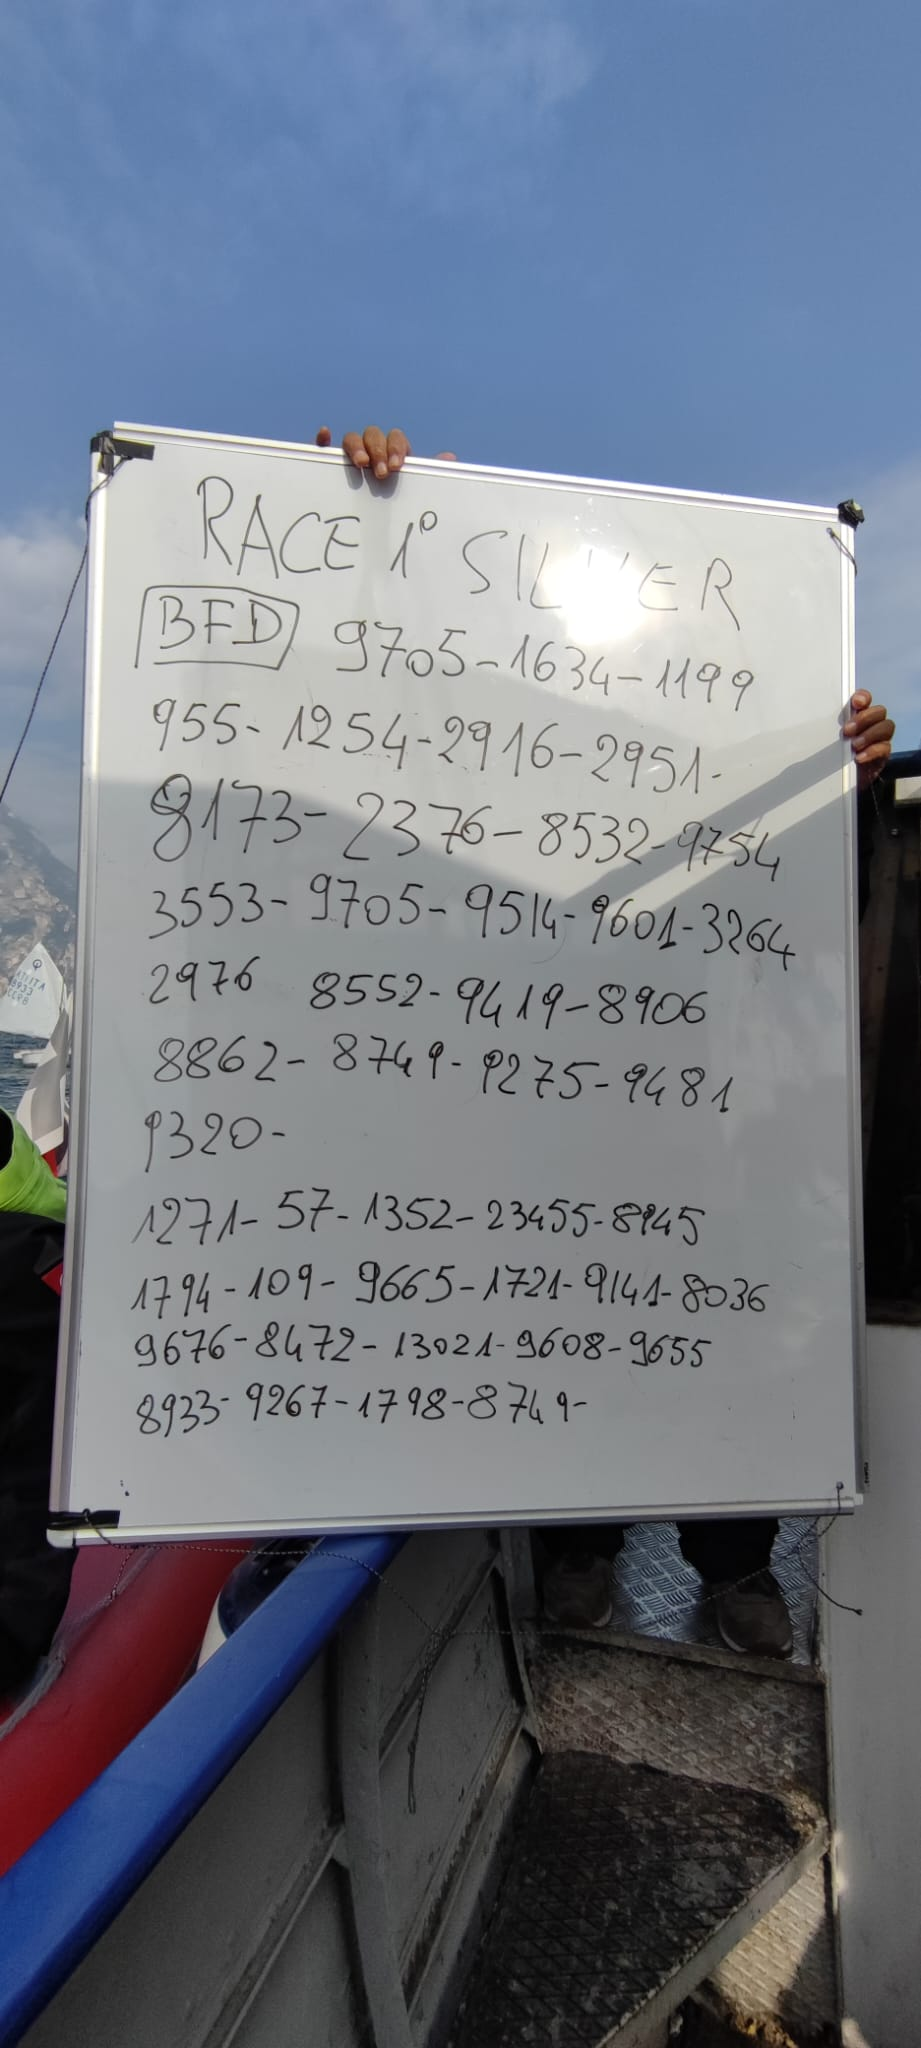 RACE 1° SILVER
BFD 9705-1634-1199
955-1254-2916-2951-
8173-2376-8532-9754
3553-9705-9514-9601-3264
2976 8552-9419-8906
8862-8749-9275-9481
9320-
1271-57-1352-23455-8945
1794-109-9665-1721-9141-8036
9676-8472-13021-9608-9655
8933-9267-1798-8749-